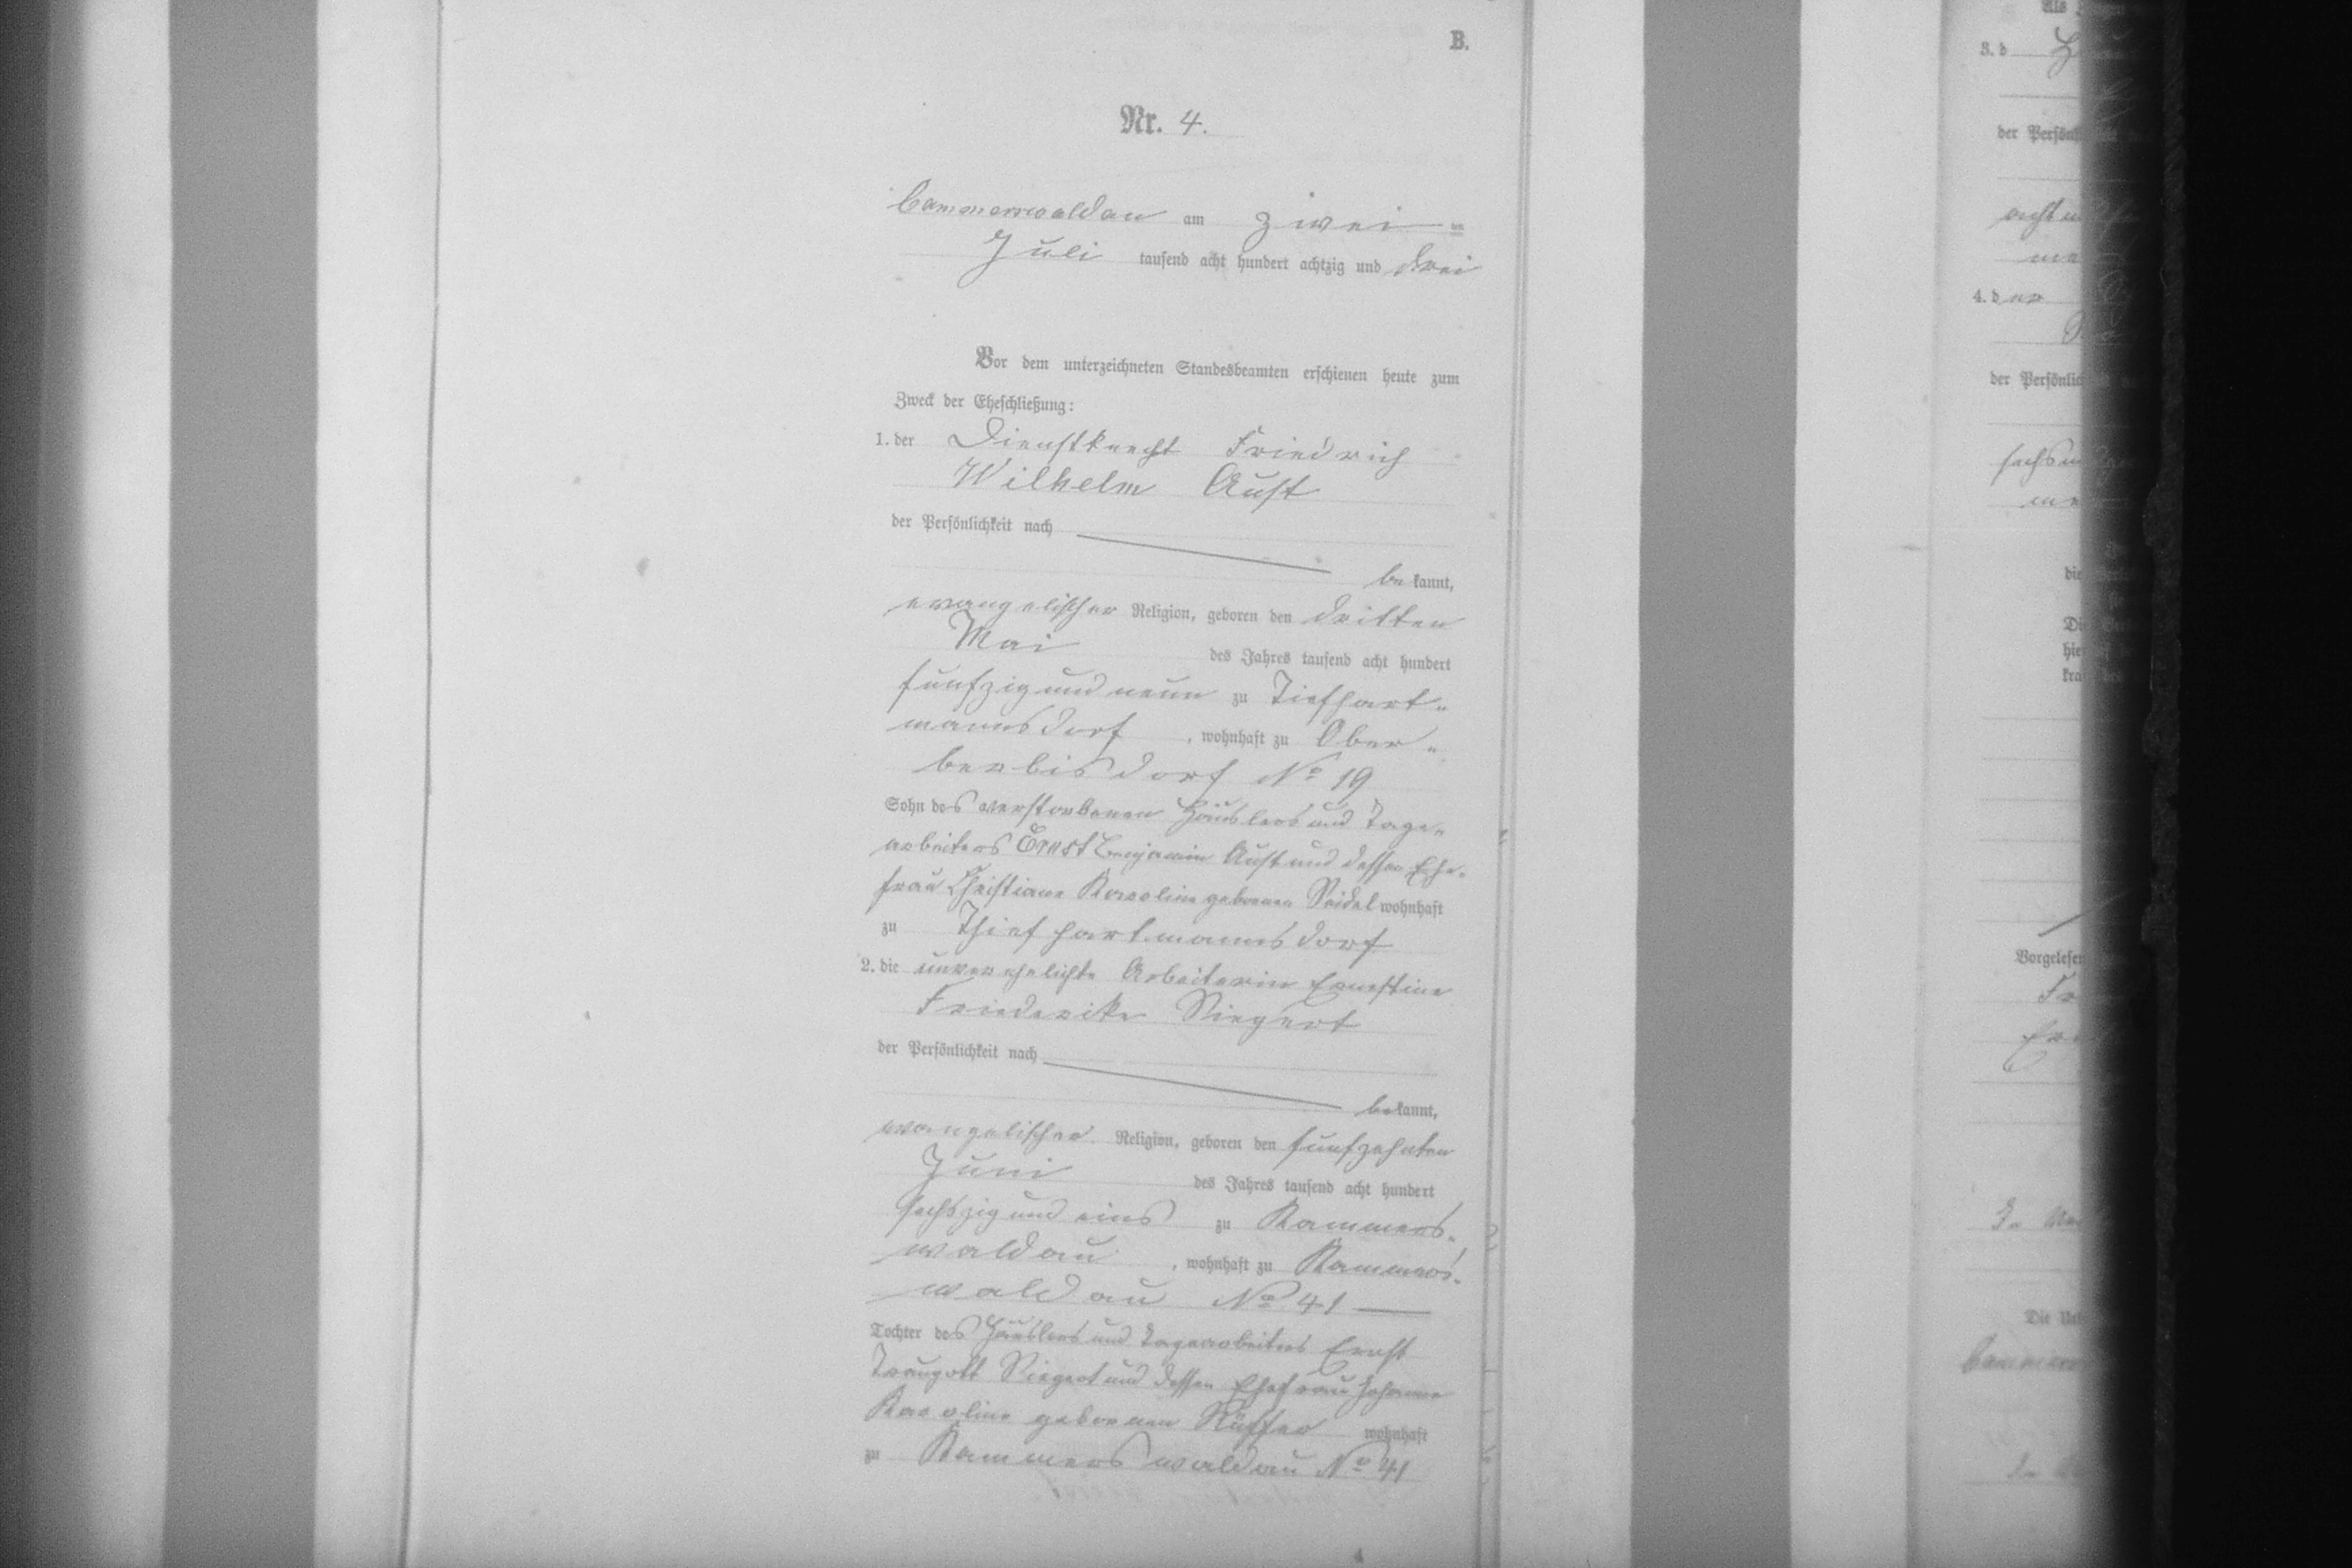 B.
Nr. 4.
Cammerswaldau am zwei-
ten
Juli tausend acht hundert achtzig und drei
Vor dem unterzeichneten Standesbeamten erschienen heute zum
Zweck der Eheschließung:
1. der Dienstknecht Friedrich
Wilhelm Aust
der Persönlichkeit nach
be kannt,
evangelischer Religion, geboren den dritten
Mai des Jahres tausend acht hundert
fünfzig und neun zu Tiefhart-
mannsdorf, wohnhaft zu Ober-
berbisdorf No 19
Sohn des verstorbenen Häuslers und Tage-
arbeiters Ernst Benjamin Aust und dessen Ehe-
frau Christiane Karoline geborenen Seidel wohnhaft
zu Thiefhartmannsdorf
2. die unverehelichte Arbeiterin Ernestine
Friederike Siegert
der Persönlichkeit nach
bekannt,
evangelischer Religion, geboren den fünfzehnten
Juni des Jahres tausend acht hundert
sechszig und eins zu Kammers-
waldau, wohnhaft zu Kammers-
waldau No 41
Tochter des Häuslers und Tagearbeiters Ernst
Traugott Siegert und dessen Ehefrau Johanne
Karoline geborenen Rüffer wohnhaft
zu Kammerswaldau No 41
3. d
der Persönl
4. d er
der Persönlic
die
Di
hie
kra
Vorgelesen
Fr